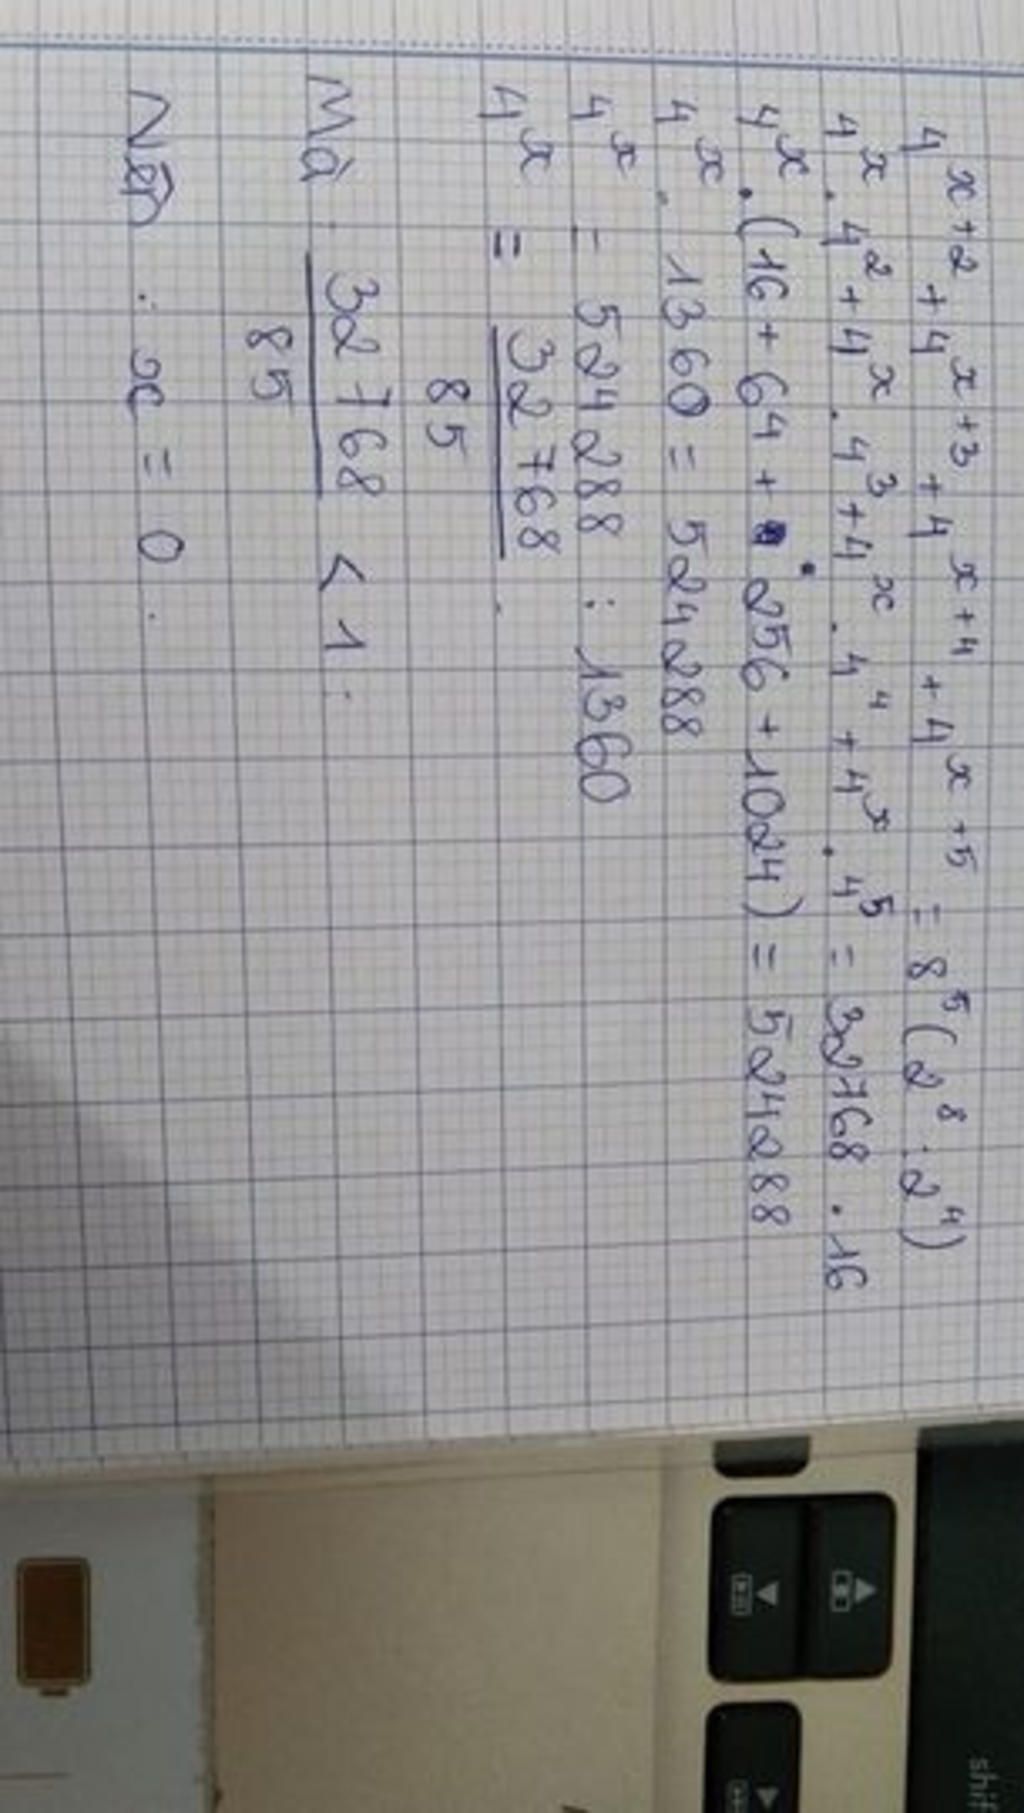 4^{x+2} + 4^{x+3} + 4^{x+4} + 4^{x+5} = 8^5 (2^8 : 2^4)
4^x . 4^2 + 4^x . 4^3 + 4^x . 4^4 + 4^x . 4^5 = 32768 . 16
4^x . (16 + 64 + 256 + 1024) = 524288
4^x . 1360 = 524288
4^x = 524288 : 1360
4^x = \frac{32768}{85} .
Mà : \frac{32768}{85} < 1 .
Nên : x = 0 .
shift